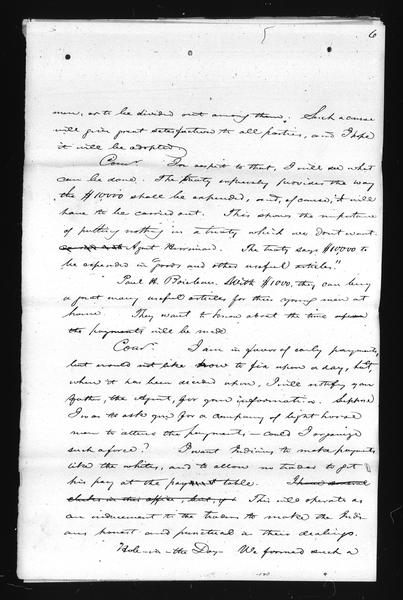 6
men, or to be divided out among them. Such a course
will give great satisfaction to all parties, and I hope
it will be adopted.
Comr. In respect to that, I will see what
can be done. The treaty expressly provides the way
the $10000 shall be expended, and, of course, it will
have to be carried out. This shows the importance
of putting nothing in a treaty which we don't want.
Agent Norwood. The treaty says $10000 to
be expended in "goods and other useful articles."
Paul H. Beaulieu. With $1000, they can buy
a great many useful articles for their young men at
home. They want to know about the time when
the payments will be made.
Comr. I am in favor of early payments,
but would not like now to fix upon a day, but,
when it has been decided upon, I will notify your
father, the Agent, for your information. Suppose
I was to ask you for a company of light horse
men to attend the payments — could I organize
such a force? I want Indians to make payments
like the whites, and to allow no trader to get
his pay at the pay table. I have several
clerks in this office, but, if This will operate as
an inducement to the traders to make the Indi-
ans honest and punctual in their dealings.
Hole-in-the-Day. We formed such a